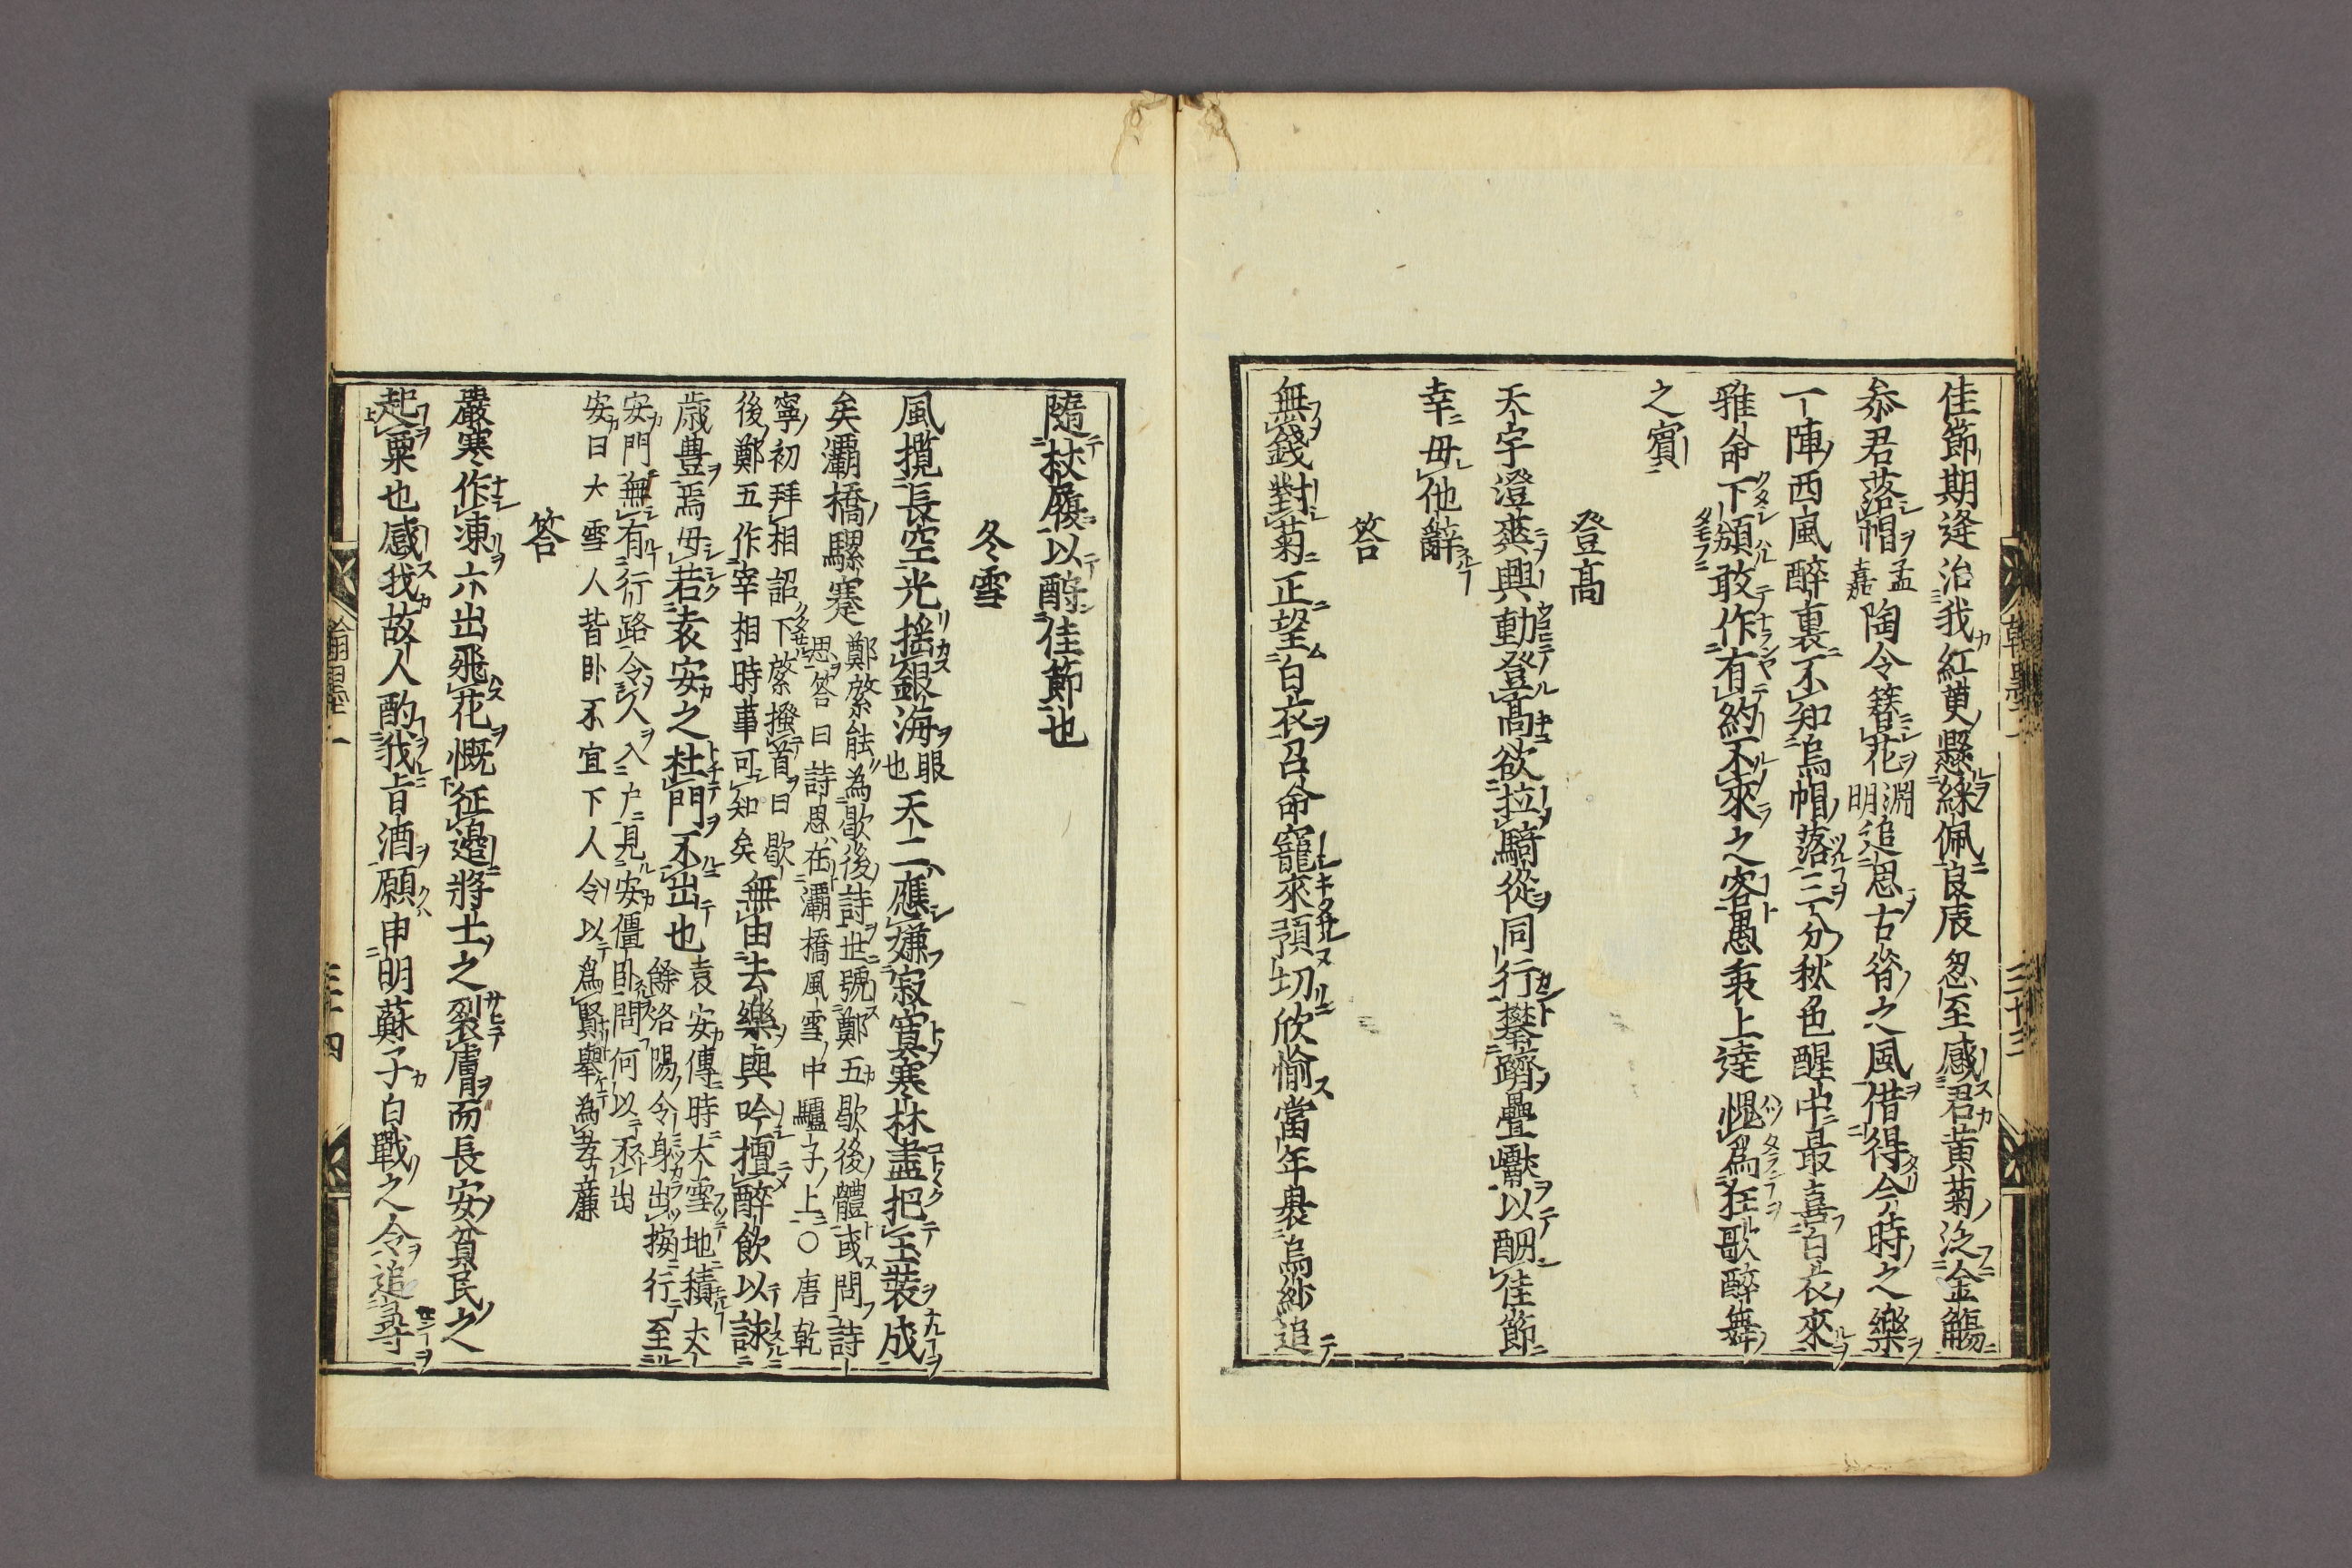 佳節期逢治我紅萸懸綵佩良辰忽至感君黄菊泛金觴
叅君落帽孟嘉陶令簪花淵明追思古昔之風借得今時之樂
一陣西風醉裏不知烏帽落三分秋色醒中最喜白衣來
雅命下頒敢作有約不來之客愚衷上達愧爲狂歌醉舞
之賓
登高
天宇澄爽興動登高欲拉騎從同行攀躋疊巘以酬佳節
幸毋他辭
答
無錢對菊正望白衣召命寵來預切欣愉當年裊烏紗追
隨杖履以酧佳節也
冬雪
風攬長空光摇銀海眼也天二應嫌寂寞寒林盡把玉装成
矣灞橋騾蹇
鄭綮能為歇後詩世號鄭五歇後體或問詩
思答曰詩思在灞橋風雪中驢子上○唐乾
寧初拜相詔下綮搔首曰歇
後鄭五作宰相時事可知矣
無由去樂與吟擅醉飲以詠
歳豊焉毋若袁安之杜門不出也
袁安傳時大雪地積丈
餘洛陽令身出按行至
安門無有行路令人入户見安僵卧問何以不出
安曰大雪人皆卧不宜下人令以爲賢舉為孝廉
答
嚴寒作凍六出飛花慨征邉將士之裂膚而長安貧民之
起粟也感我故人酌我旨酒願申明蘇子白戰之令追尋